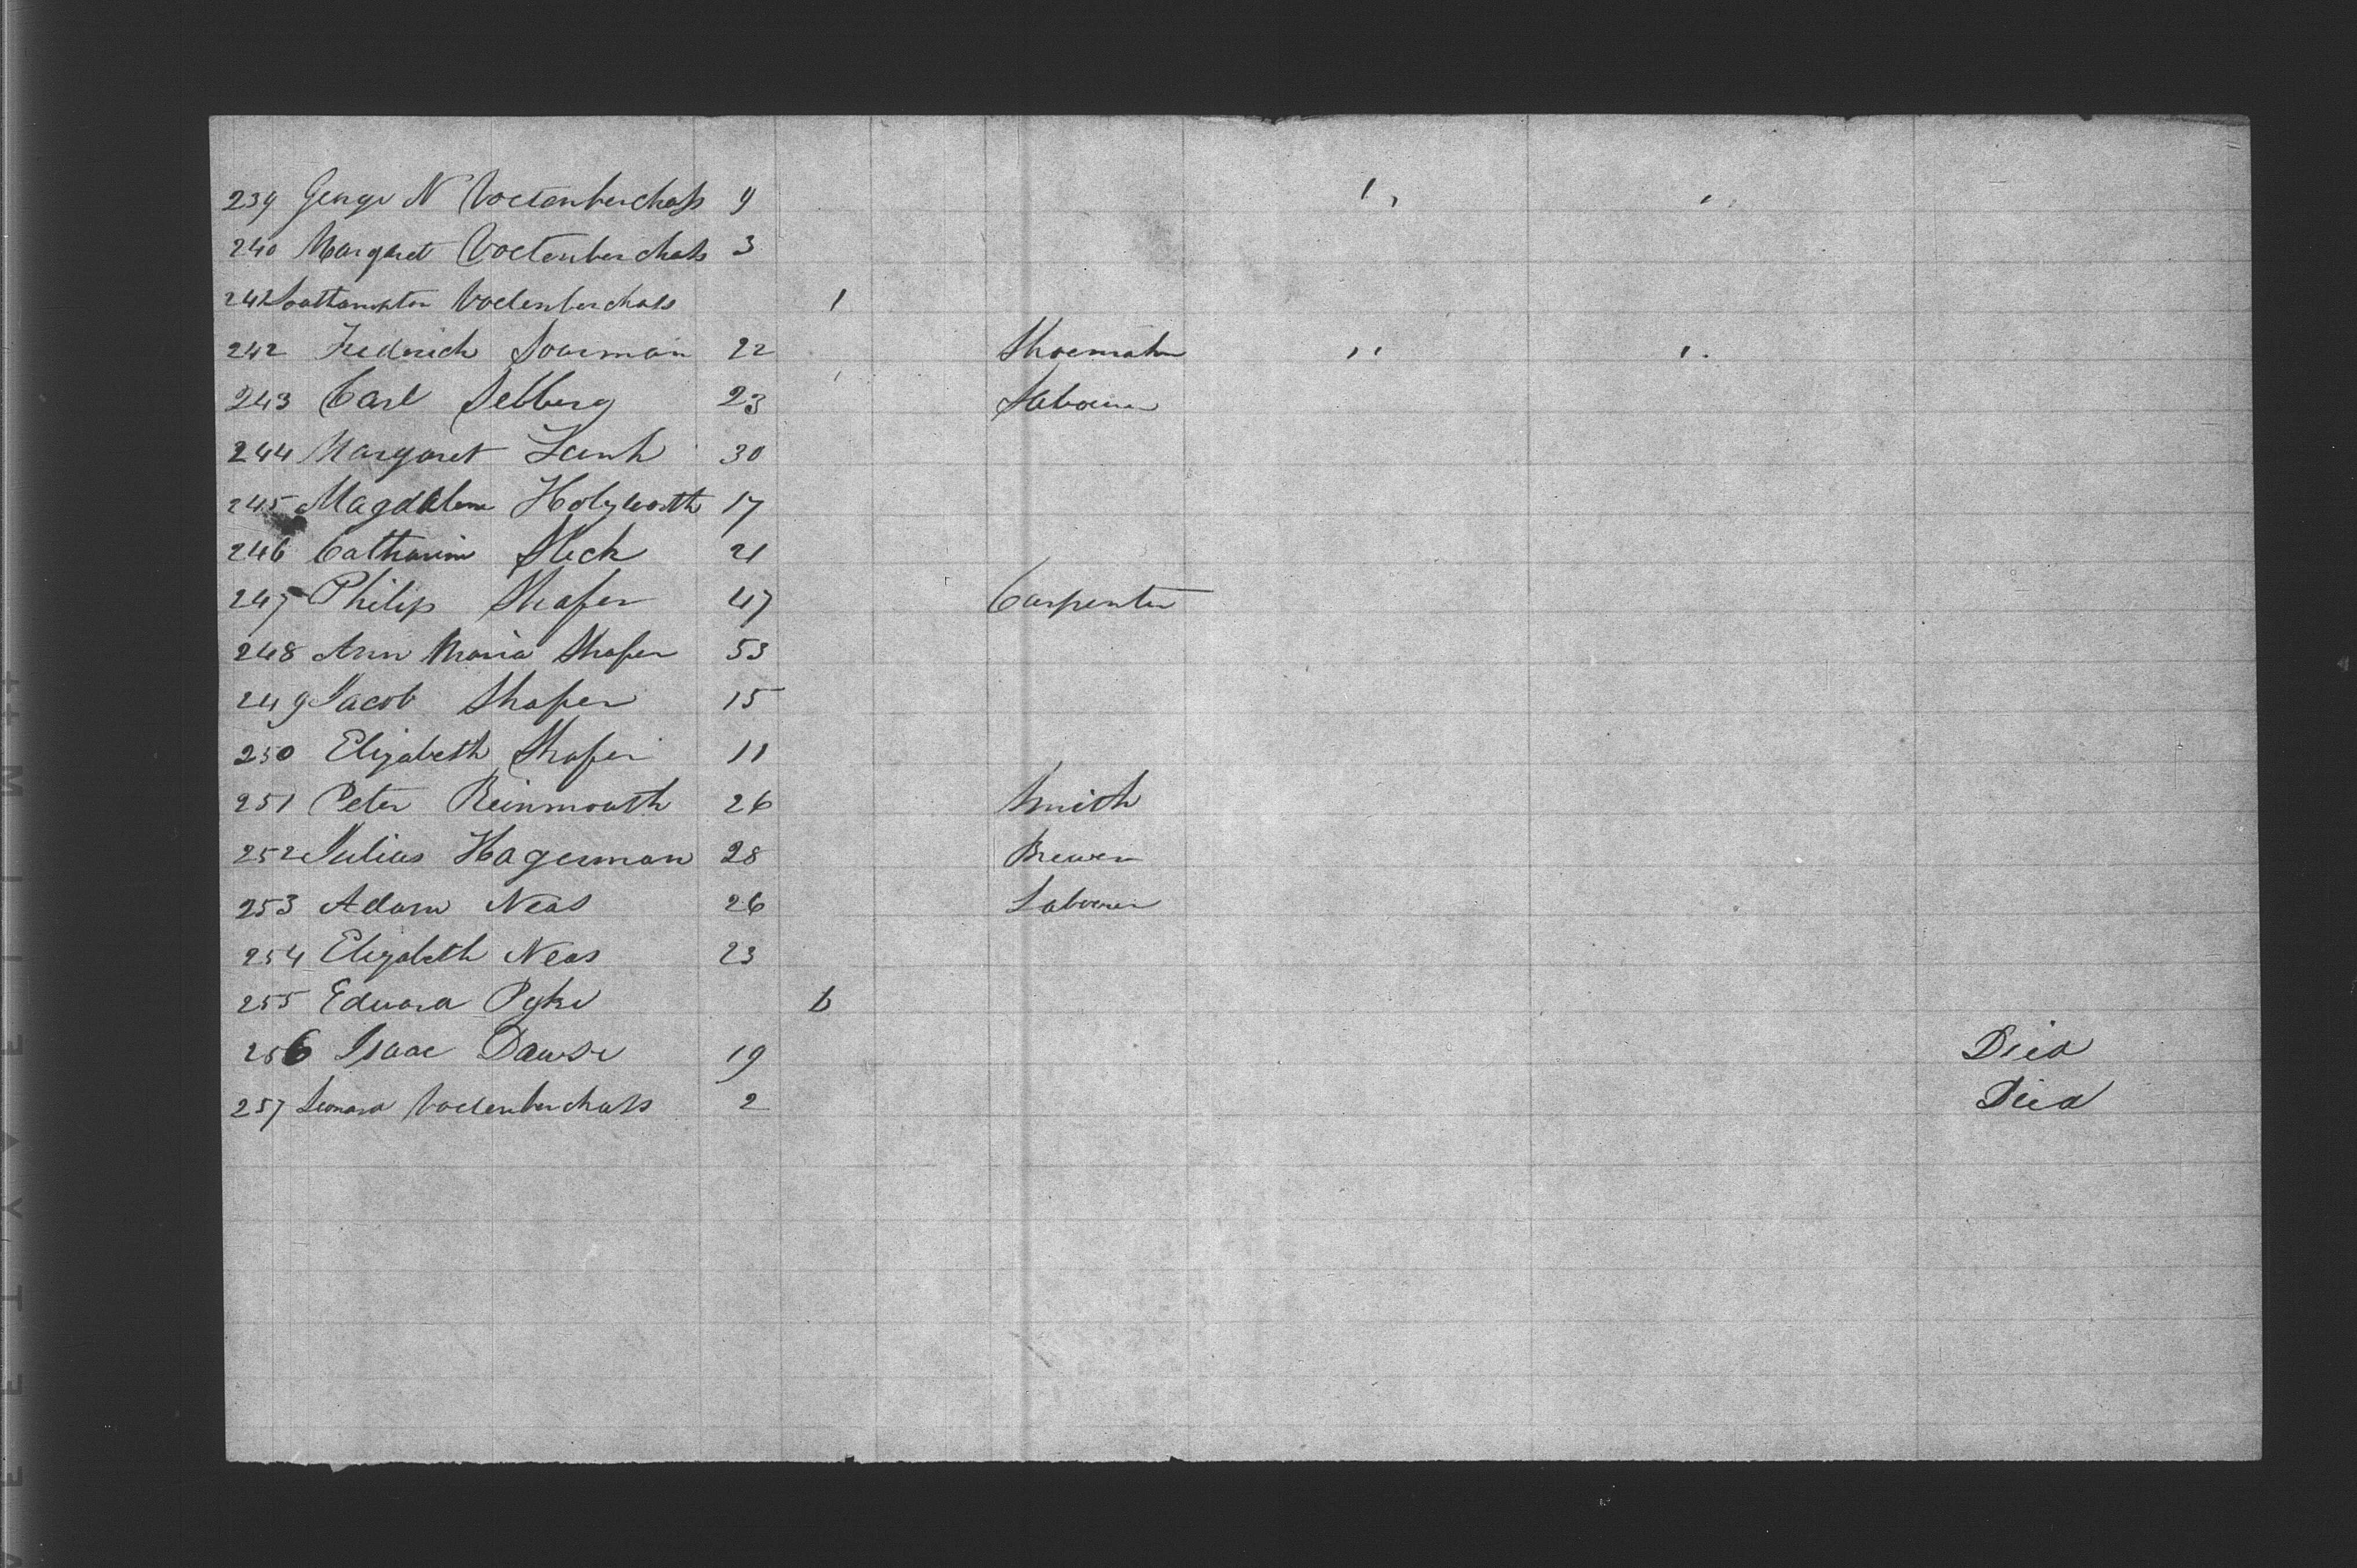 239 George N Voctenberchass 9 1, ,
240 Margaret Voctenberchass 3
241 Southampton Voctenberchass 1
242 Frederich Soorman 22 Shoemaker ,, ,.
243 Carl Selberg 23 Labourer
244 Margaret 30
245 Magdalene Holyworth 17
246 Catharine Sleck 21
247 Philip Shafer 47 Carpenter
248 Ann Maria Shafer 53
249 Jacob Shafer 15
250 Elizabeth Shafer 11
251 Peter Reinmouth 26 Smith
252 Julius Hagerman 28 Brewer
253 Adam Neas 26 Labourer
254 Elizabeth Neas 23
255 Edward Pyke 6
256 Isaac Dawse 19 Died
257 Leonard Voctenberchass 2 Died